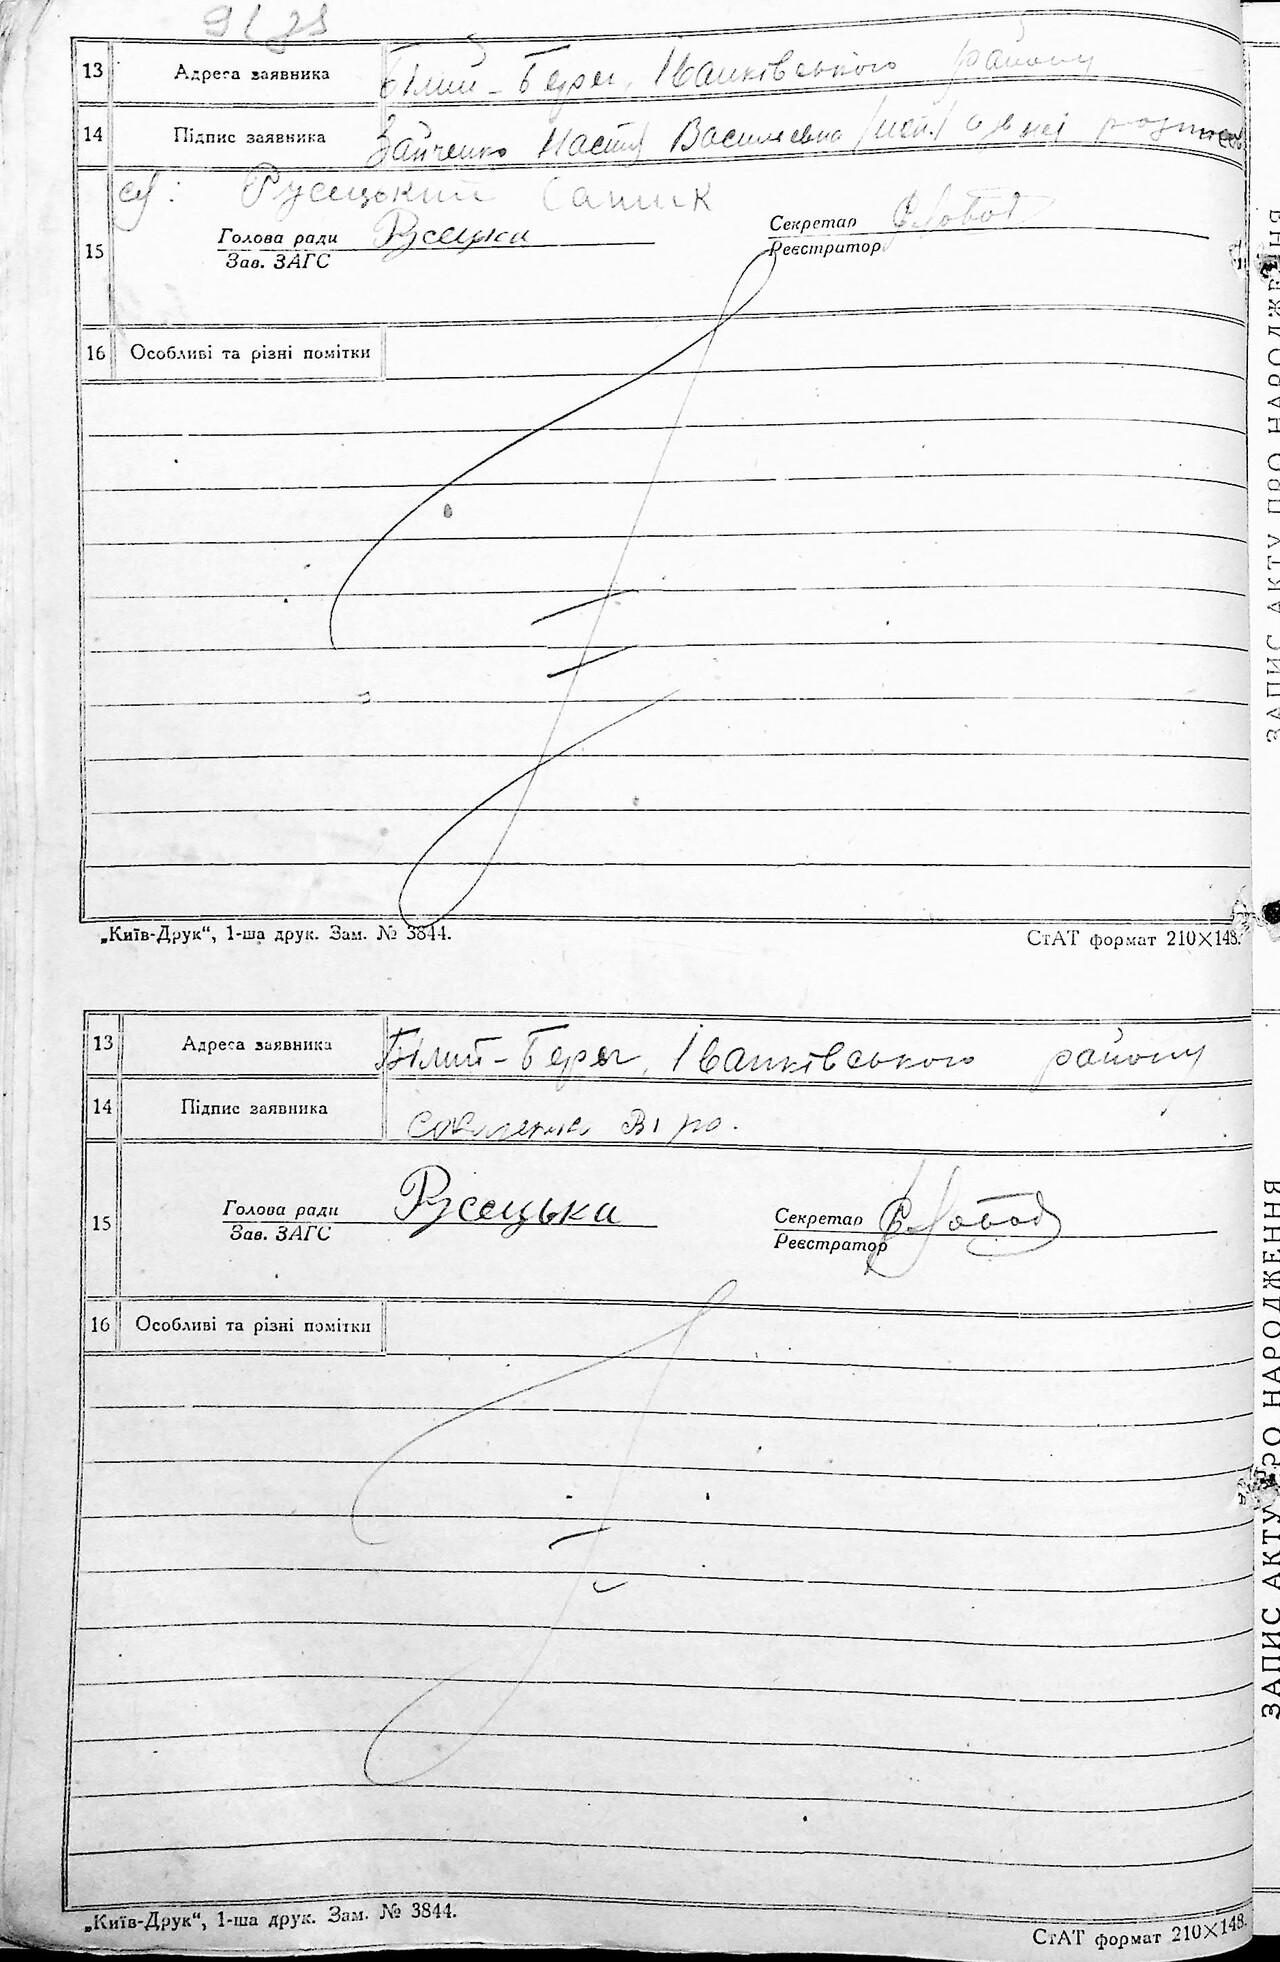 13 Адреса заявника Білий-Берег, Іванківського району
14 Підпис заявника Зайченко Настя Василівна
Русецький
Голова ради Русецька Секретар
15 Зав. ЗАГС Реєстратор
16 Особливі та різні помітки
„Київ-Друк“, 1-ша друк. Зам. № 3844. СтАТ формат 210×148.
ЗАПИС АКТУ ПРО НАРОДЖЕННЯ
13 Адреса заявника Білий-Берег, Іванківського району
14 Підпис заявника
Голова ради Русецька Секретар
15 Зав. ЗАГС Реєстратор
16 Особливі та різні помітки
„Київ-Друк“, 1-ша друк. Зам. № 3844. СтАТ формат 210×148.
ЗАПИС АКТУ ПРО НАРОДЖЕННЯ